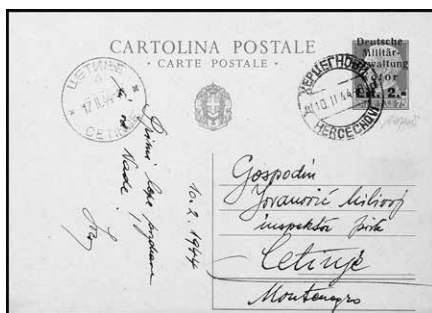 CARTOLINA POSTALE
· CARTE POSTALE ·
Deutsche
Militär-
Verwaltung
Kotor
Lit. 2.-
ЦЕТИЊЕ
17 II 44
CETINJE
ХЕРЦЕГНОВИ
10. II. 44
HERCEGNOVI
10. 2. 1944
Primi lepe pozdrave
i od Nade.
Gospodin
Jovanović Milivoj
inspektor
Cetinje
Montenegro